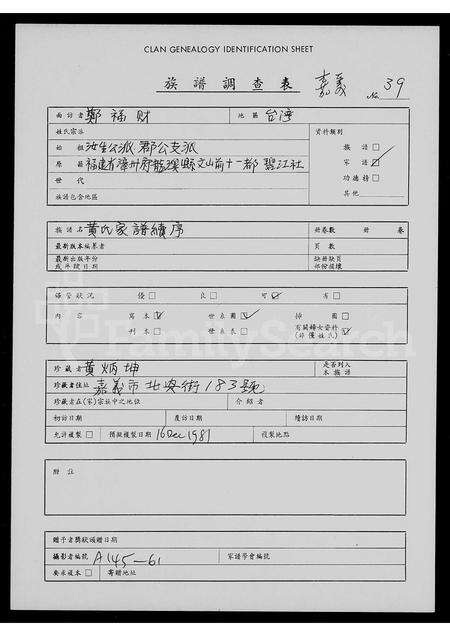 CLAN GENEALOGY IDENTIFICATION SHEET
族譜調查表 嘉義 No 39
面訪者 鄭福財 地區 台灣
姓氏宗派 資料類別
始祖 汝生公派郡公支派 族譜□
原籍 福建省漳州府龍溪縣文山前十一都碧江社 家譜□✓
世代 功德榜□
族譜包含地區 其他
族譜名 黃氏家譜續序 冊卷數 冊 卷
最新版本編纂者 頁數
最新出版年分 缺冊缺頁
或年號日期 部份損壞
保管狀況 優□ 良□ 可☑ 有□
內容 寫本☑ 世系圖☑ 掃圖□ 有關婦女資料☑
刊本□ 種系長□ (非僅姓氏)
珍藏者 黃炳坤 是否列入
本族譜
珍藏者住址 嘉義市北興街183號
珍藏者在(家)宗族中之地位 介紹者
初訪日期 度訪日期 續訪日期
允許複製□ 預擬複製日期 16 Dec 1981 複製地點
附註
贈予者獎狀頒贈日期
攝影者編號 A145-61 家譜學會編號
要求複本□ 寄贈地址
FamilySearch